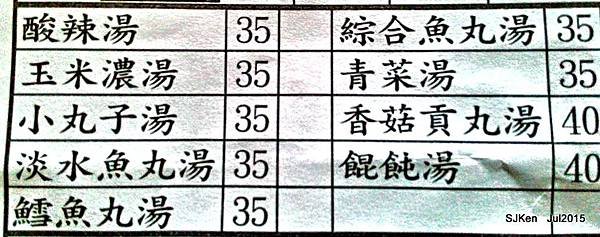 酸辣湯 35 綜合魚丸湯 35
玉米濃湯 35 青菜湯 35
小丸子湯 35 香菇貢丸湯 40
淡水魚丸湯 35 餛飩湯 40
鱈魚丸湯 35
SJKen Jul2015